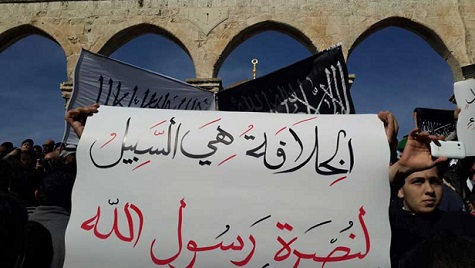 الخِلَافَةُ هِيَ السَّبِيلُ
لنُصْرَةِ رَسُولِ اللّه